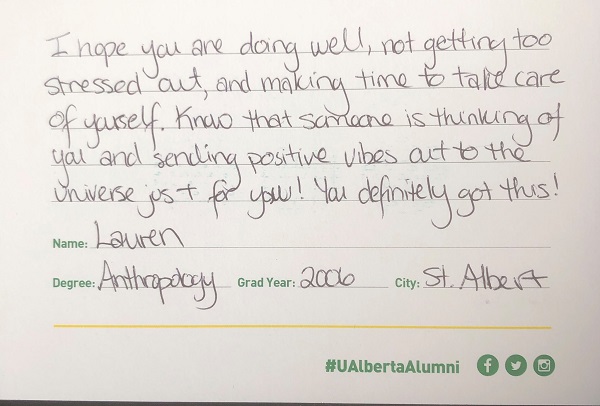 I hope you are doing well, not getting too
stressed out, and making time to take care
of yourself. Know that someone is thinking of
you and sending positive vibes out to the
universe just for you! You definitely got this!
Name: Lauren
Degree: Anthropology Grad Year: 2006 City: St. Albert
#UAlbertaAlumni